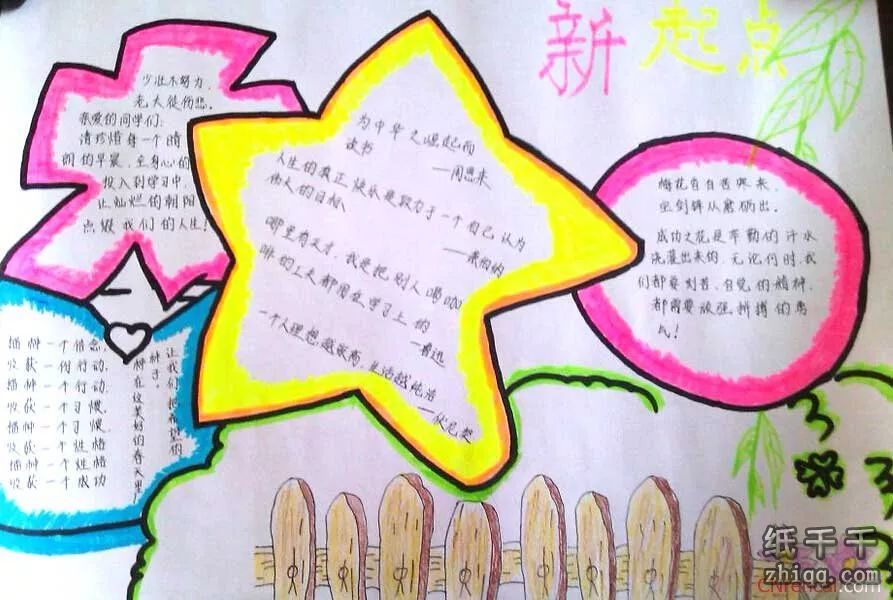 新起点
少壮不努力,
老大徒伤悲。
亲爱的同学们:
请珍惜每一个晴
朗的早晨,全身心的
投入到学习中,
让灿烂的朝阳
点缀我们的人生!
为中华之崛起而
读书
——周恩来
人生的真正快乐是致力于一个自己认为
伟大的目标。
——萧伯纳
哪里有天才,我是把别人喝咖
啡的工夫都用在学习上的
——鲁迅
一个人理想越崇高,生活越纯洁
——伏尼契
梅花自自苦寒来,
宝剑锋从磨砺出。
成功之花是辛勤的汗水
浇灌出来的,无论何时,我
们都要刻苦、自觉的精神,
都需要顽强拼搏的勇
气!
播种一个信念,
收获一份行动,
播种一个行动,
收获一个习惯,
播种一个习惯,
收获一个性格
播种一个性格
收获一个成功
让我们把希望的
种子,
种在这美好的春天里
纸千千
zhiqq.com